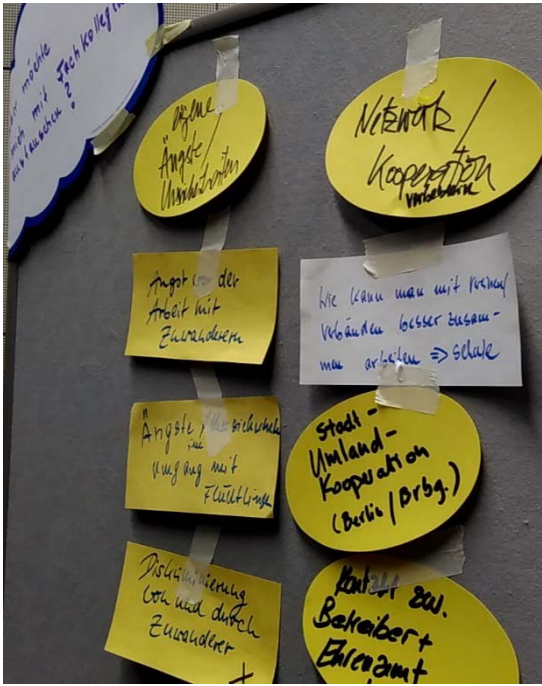 möchte
mich mit Fachkolleg
austauschen?
eigene
Ängste/
Unsicherheiten
Angst vor der
Arbeit mit
Zuwanderern
Ängste,
im
Umgang mit
Flüchtlingen
Diskriminierung
von und durch
Zuwanderer
Netzwerk/
Kooperation
verbessern
Wie kann man mit
verbänden besser zusam-
men arbeiten =>
Stadt-
Umland-
Kooperation
(Berlin/Brbg.)
Kontakt zw.
Betreiber +
Ehrenamt